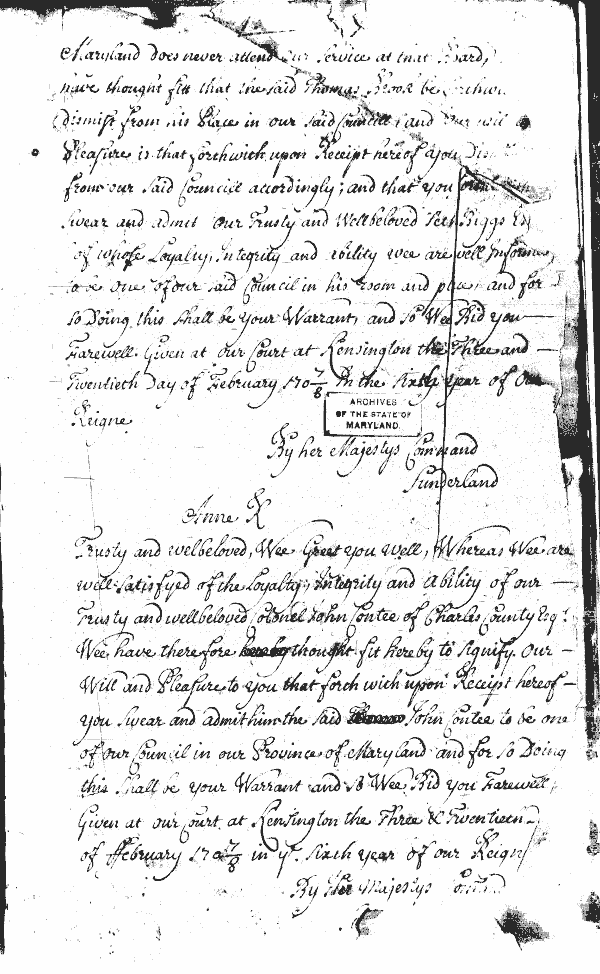 Maryland does never attend our Service at that Board,
have thought fitt that the said Thomas Brook be forthw
dismist from his Place in our said Councill, and Our will &
Pleasure is that forthwith upon Receipt hereof You Dis
from our said Councill accordingly; and that you
Swear and admit Our Trusty and Wellbeloved Seth Biggs Es
of whose Loyalty, Integrity and ability wee are well Informed
to be one of our said Council in his room and place, and for
so Doing this shall be Your Warrant, and so Wee Bid you
Farewell. Given at our Court at Kensington the Three and
Twentieth Day of February 170 7/8 In the sixth year of Our
Reigne
ARCHIVES
OF THE STATE OF
MARYLAND.
By her Majestys Command
Sunderland
Anne R
Trusty and welbeloved, Wee Greet you well, Whereas Wee are
well satisfyed of the Loyalty, Integrity and Ability of our
Trusty and wellbeloved Colonel John Contee of Charles County Esqr.
Wee have therefore thought fit hereby to signify Our
Will and Pleasure to you that forthwith upon Receipt hereof
you Swear and admit him the said John Contee to be one
of our Council in our Province of Maryland and for so Doing
this shall be your Warrant and so Wee Bid you Farewell,
Given at our Court at Kensington the Three & Twentieth
of ffebruary 170 7/8 in ye. sixth year of our Reign
By Her Majestys Com